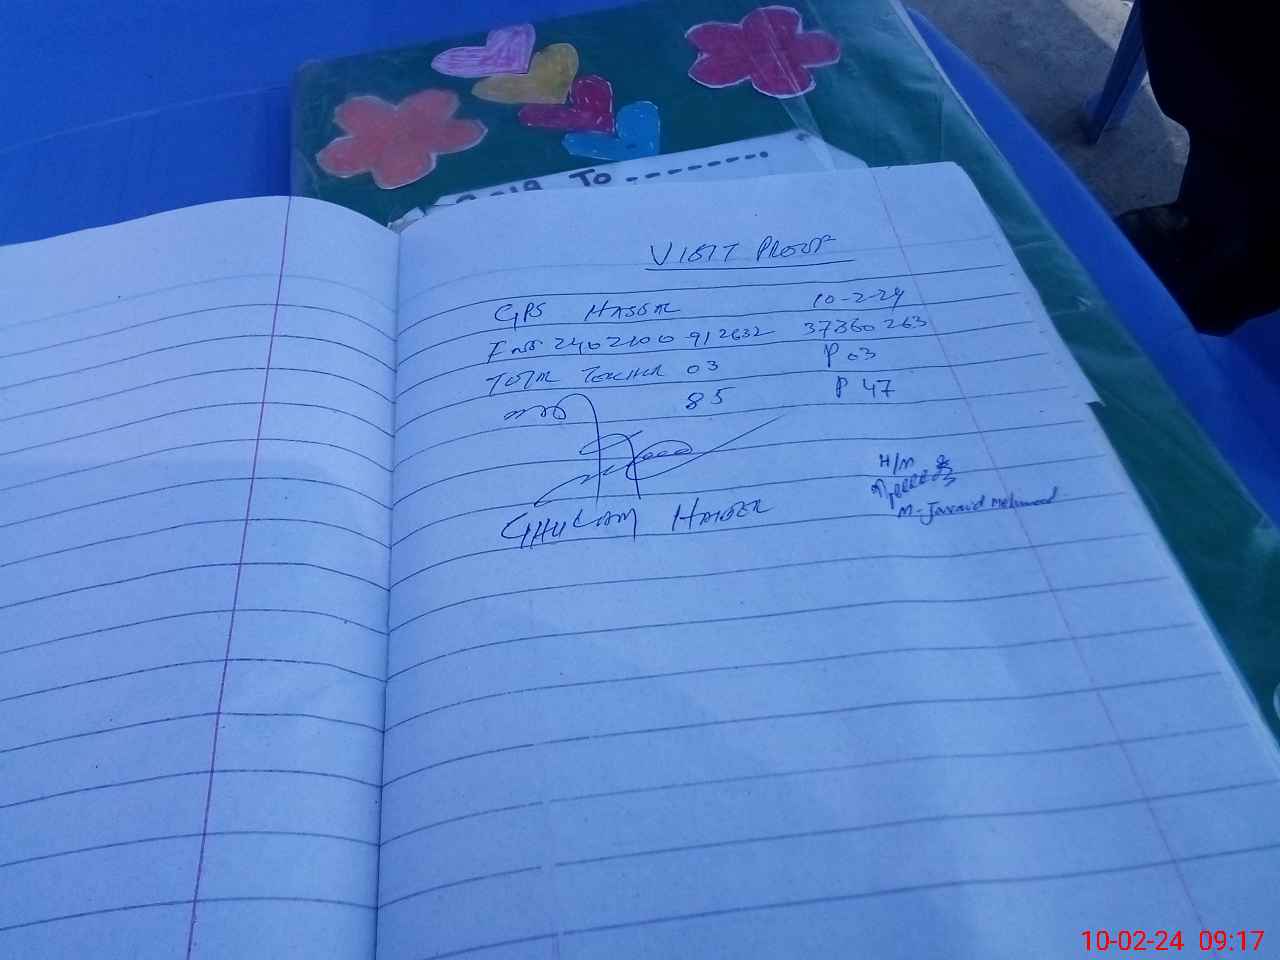 To -------.
VISIT PROOF
GPS HASSAR 10-2-24
2402100 912632 37360263
TOTAL TEACHER 03 P 03
85 P 47
H/M
GHULAM HAIDER
M-Javaid Mehmood
10-02-24 09:17